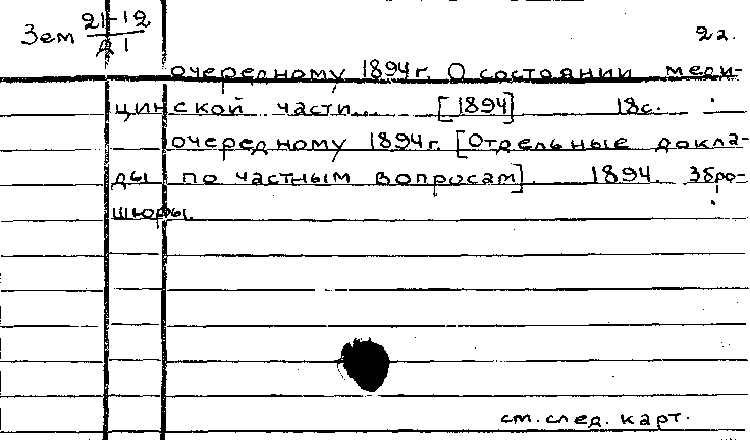 Зем 21-12 2а.
21
очередному 1894г. О состоянии меди-
цинской части... [1894] 18с.
очередному 1894г. [Отдельные докла-
ды по частным вопросам]. 1894. 3 бро-
шюры.
см. след. карт.